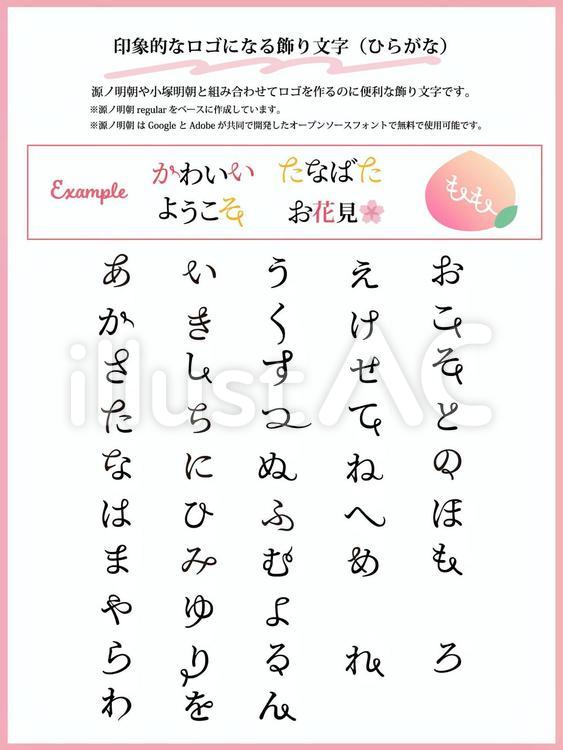 印象的なロゴになる飾り文字（ひらがな）
源ノ明朝や小塚明朝と組み合わせてロゴを作るのに便利な飾り文字です。
※源ノ明朝 regular をベースに作成しています。
※源ノ明朝 は Google と Adobe が共同で開発したオープンソースフォントで無料で使用可能です。
Example
かわいい たなばた
ようこそ お花見
もも
あ い う え お
か き く け こ
さ し す せ そ
illust AC
た ち つ て と
な に ぬ ね の
は ひ ふ へ ほ
ま み む め も
や ゆ よ
ら り る れ ろ
わ を ん